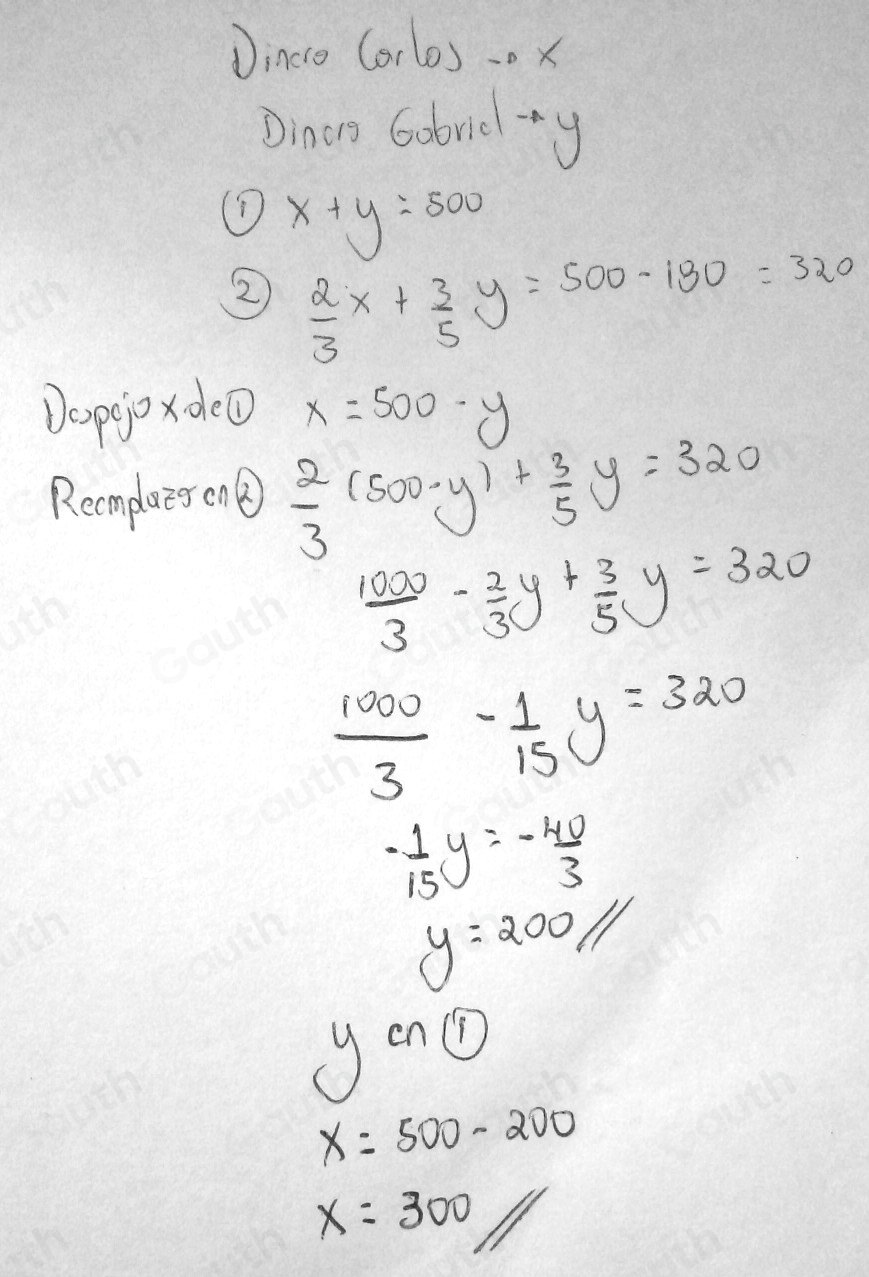 Dinero Carlos → x
Dinero Gabriel → y
① x + y = 500
② 2/3 x + 3/5 y = 500 - 180 = 320
Despejo x de ① x = 500 - y
Reemplazo en ② 2/3 (500 - y) + 3/5 y = 320
1000/3 - 2/3 y + 3/5 y = 320
1000/3 - 1/15 y = 320
- 1/15 y = - 40/3
y = 200 //
y en ①
x = 500 - 200
x = 300 //
Gauth